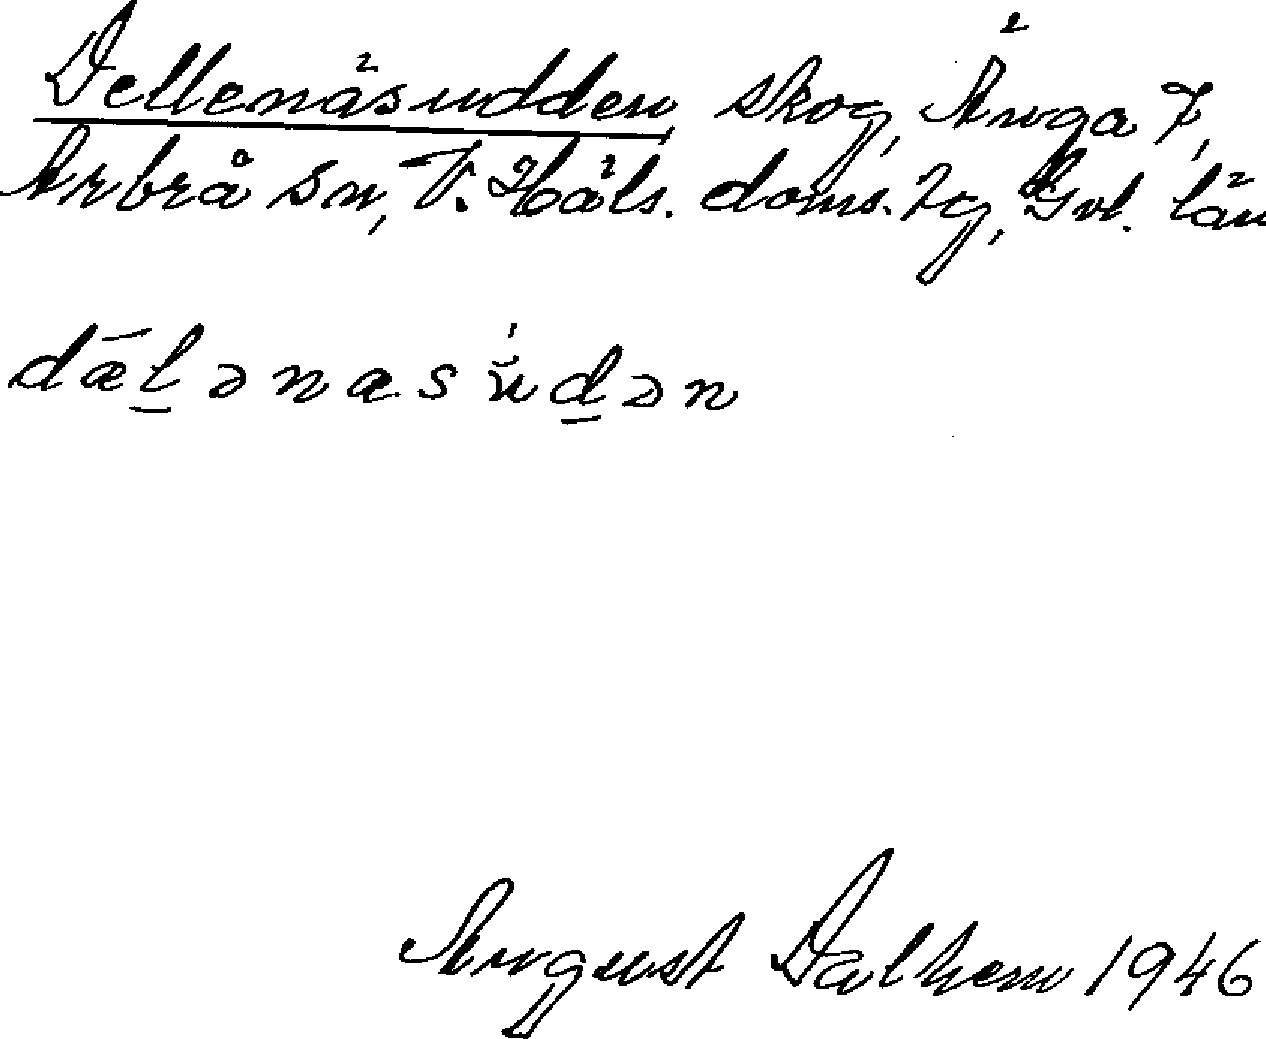 Dellenäsudden skog, Änga 7,
Arbrå sn, V. Häls. doms. Gvl. län
dæ̅l̲ənæsŭ́d̲ən
August Dalhem 1946